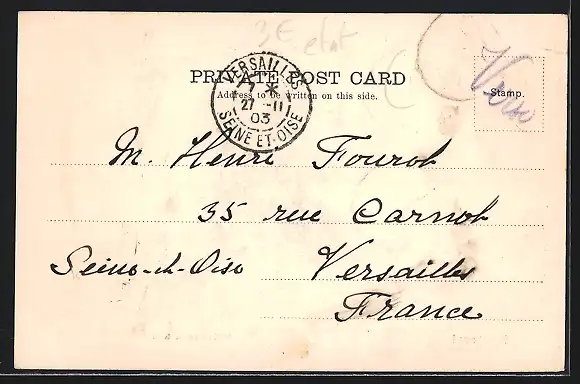 3E etat
PRIVATE POST CARD
Address to be written on this side.
Stamp.
Verso
VERSAILLES
7 *
27 -11
03
SEINE ET-OISE
M. Henri Fourot
35 rue Carnot
Seine-et-Oise Versailles
France